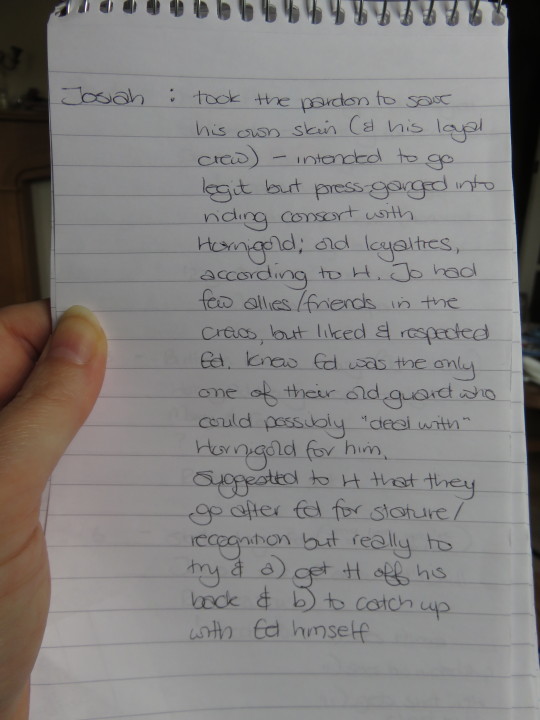 Josiah : took the pardon to save
his own skin (& his loyal
crew) - intended to go
legit but press-ganged into
riding consort with
Horngold; old loyalties,
according to H. Jo had
few allies/friends in the
crews, but liked & respected
Ed. Knew Ed was the only
one of their old guard who
could possibly "deal with"
Horngold for him.
Suggested to H that they
go after Ed for stature/
recognition but really to
try & a) get H off his
back & b) to catch up
with Ed himself